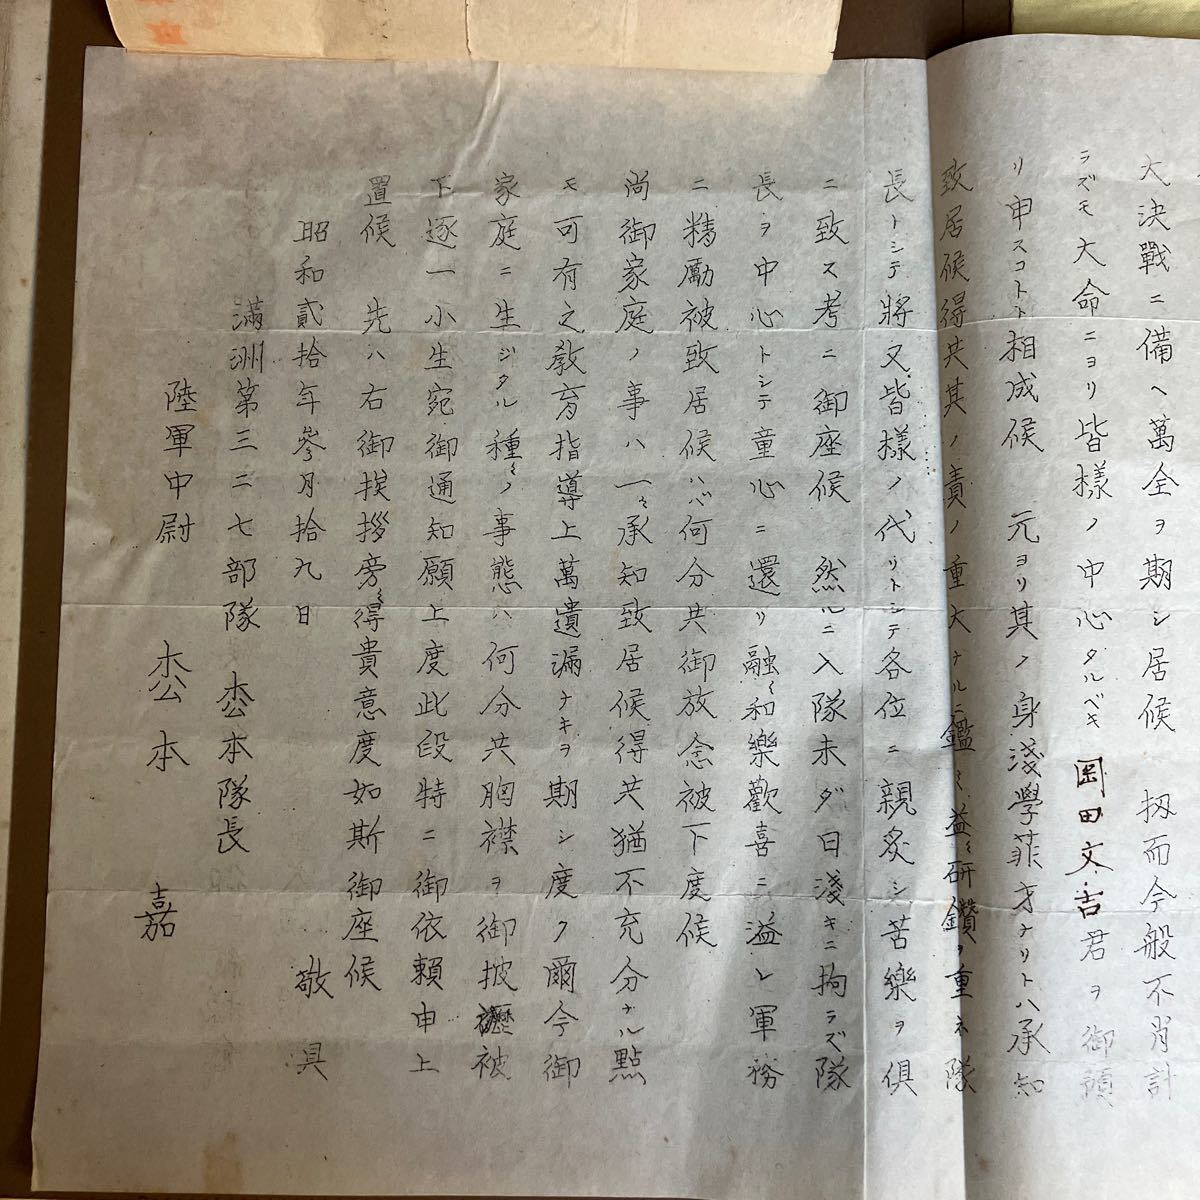 大決戰ニ備ヘ萬全ヲ期シ居候 扨而今般不肖計
ラズモ大命ニヨリ皆樣ノ中心タルベキ岡田文吉君ヲ御預
リ申スコトヽ相成候 元ヨリ其ノ身淺學菲才ナリトハ承知
致居候得共其ノ責ノ重大ナルニ鑑ミ益々研鑽ヲ重ネ隊
長トシテ將又皆樣ノ代リトシテ各位ニ親炙シ苦樂ヲ俱
ニ致ス考ニ御座候 然ルニ入隊未ダ日淺キニ拘ラズ隊
長ヲ中心トシテ童心ニ還リ融々和樂歡喜ニ溢レ軍務
ニ精勵被致居候ヘバ何分共御放念被下度候
尚御家庭ノ事ハ一々承知致居候得共猶不充分ナル點
モ可有之教育指導上萬遺漏ナキヲ期シ度ク爾今御
家庭ニ生ジタル種々ノ事態ハ何分共胸襟ヲ御披瀝被
下逐一小生宛御通知願上度此段特ニ御依賴申上
置候 先ハ右御挨拶旁々得貴意度如斯御座候
敬具
昭和貳拾年參月拾九日
滿洲第三二七部隊 枩本隊長
陸軍中尉 枩本 嘉